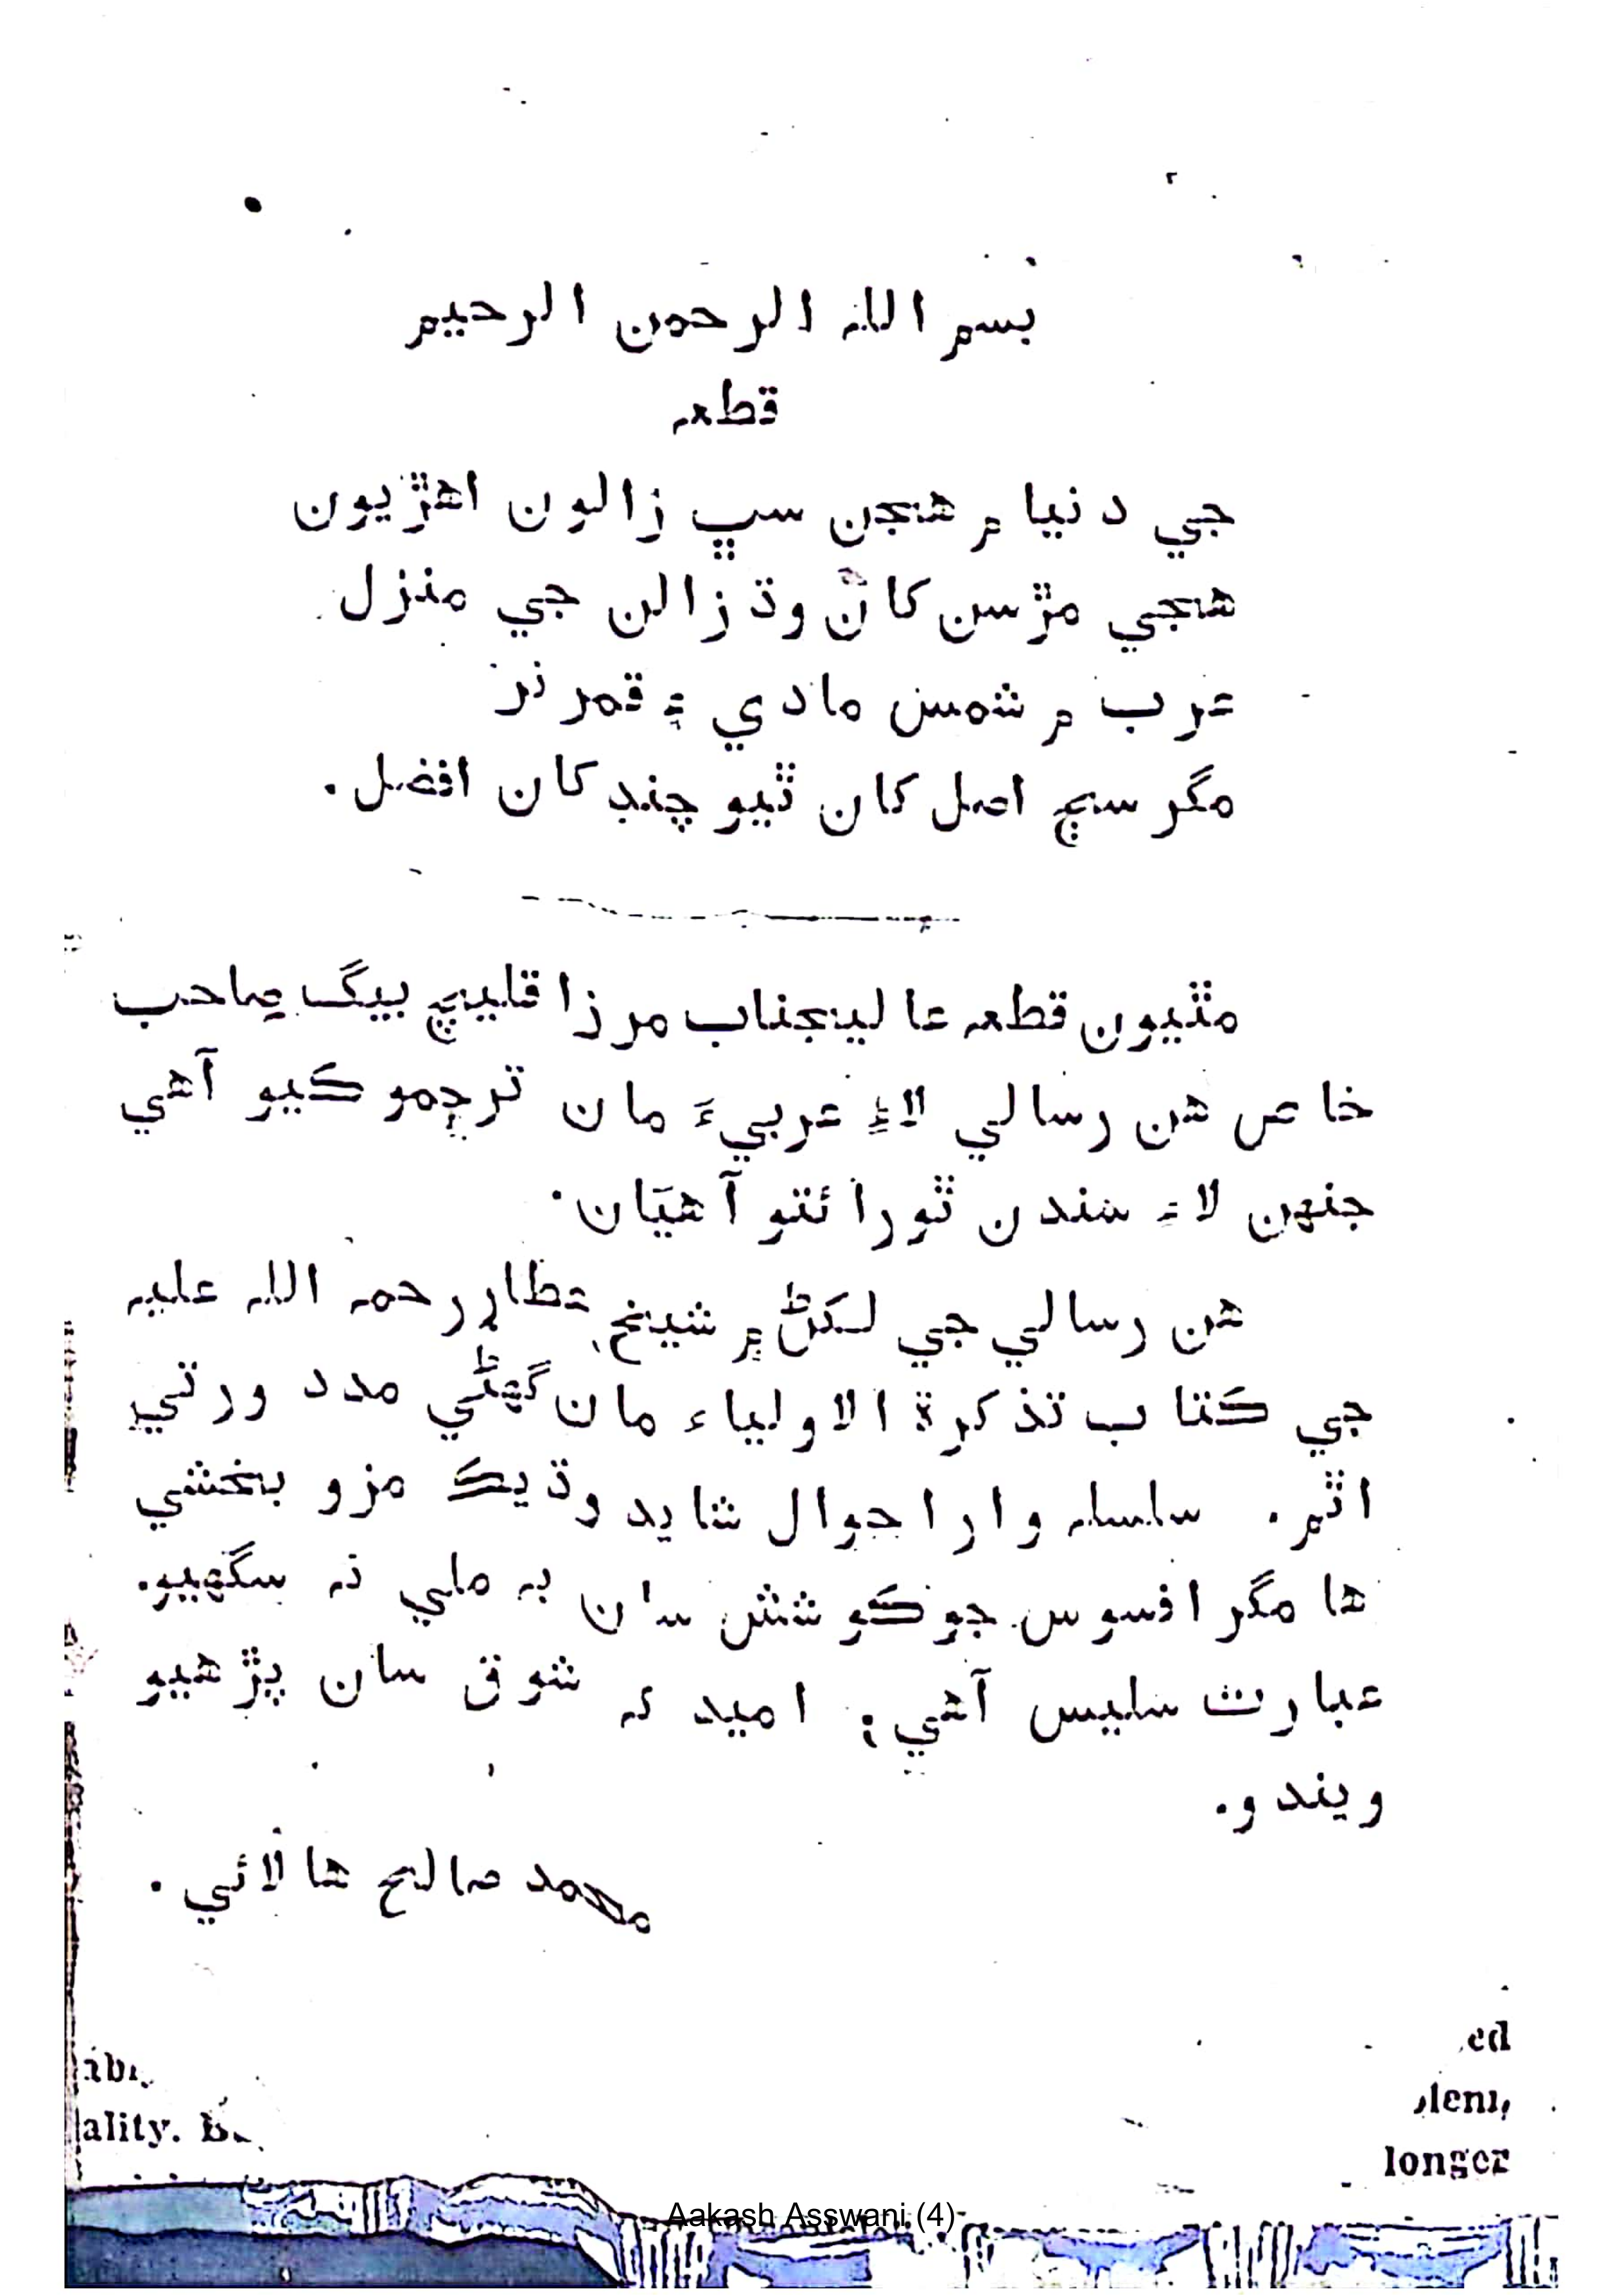 بسم الله الرحمن الرحيم
قطعہ
جي دنيا ۾ هجن سڀ زالون اهڙيون
هجي مڙسن کان وڌ زالن جي منزل
عرب ۾ شمس مادي ۽ قمر نر
مگر سج اصل کان ٿيو چنڊ کان افضل.
مٿيون قطعہ عاليجناب مرزا قليچ بيگ صاحب
خاص هن رسالي لاءِ عربيءَ مان ترجمو ڪيو آهي
جنهن لاءِ سندن ٿورائتو آهيان.
هن رسالي جي لکڻ ۾ شيخ عطار رحمہ الله عليہ
جي ڪتاب تذکرة الاولياء مان گهڻي مدد ورتي
اٿم. سلسلہ وار احوال شايد وڌيڪ مزو بخشي
ها مگر افسوس جو ڪوشش سان بہ ملي نہ سگهيو.
عبارت سليس آهي؛ اميد تہ شوق سان پڙهيو
ويندو.
محمد صالح هالائي.
ed
ality.
longer
Aakash Asswani (4)